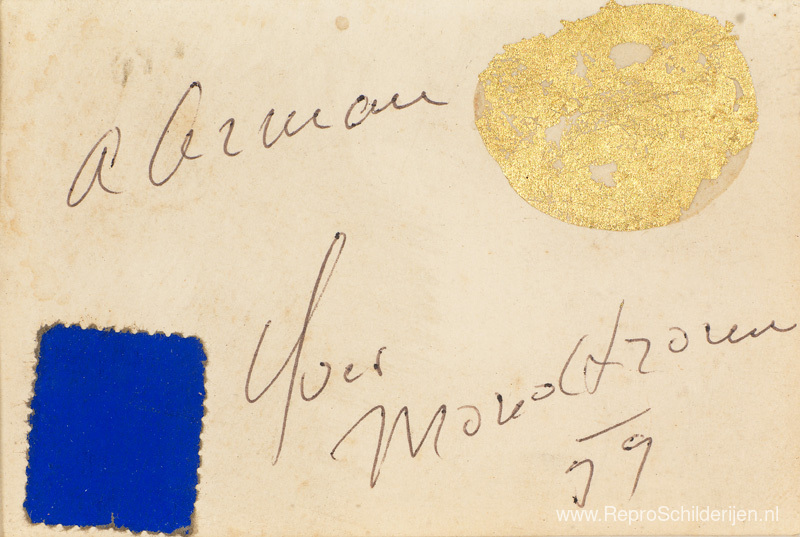 a Arman
Yves
Monochrome
59
www.ReproSchilderijen.nl